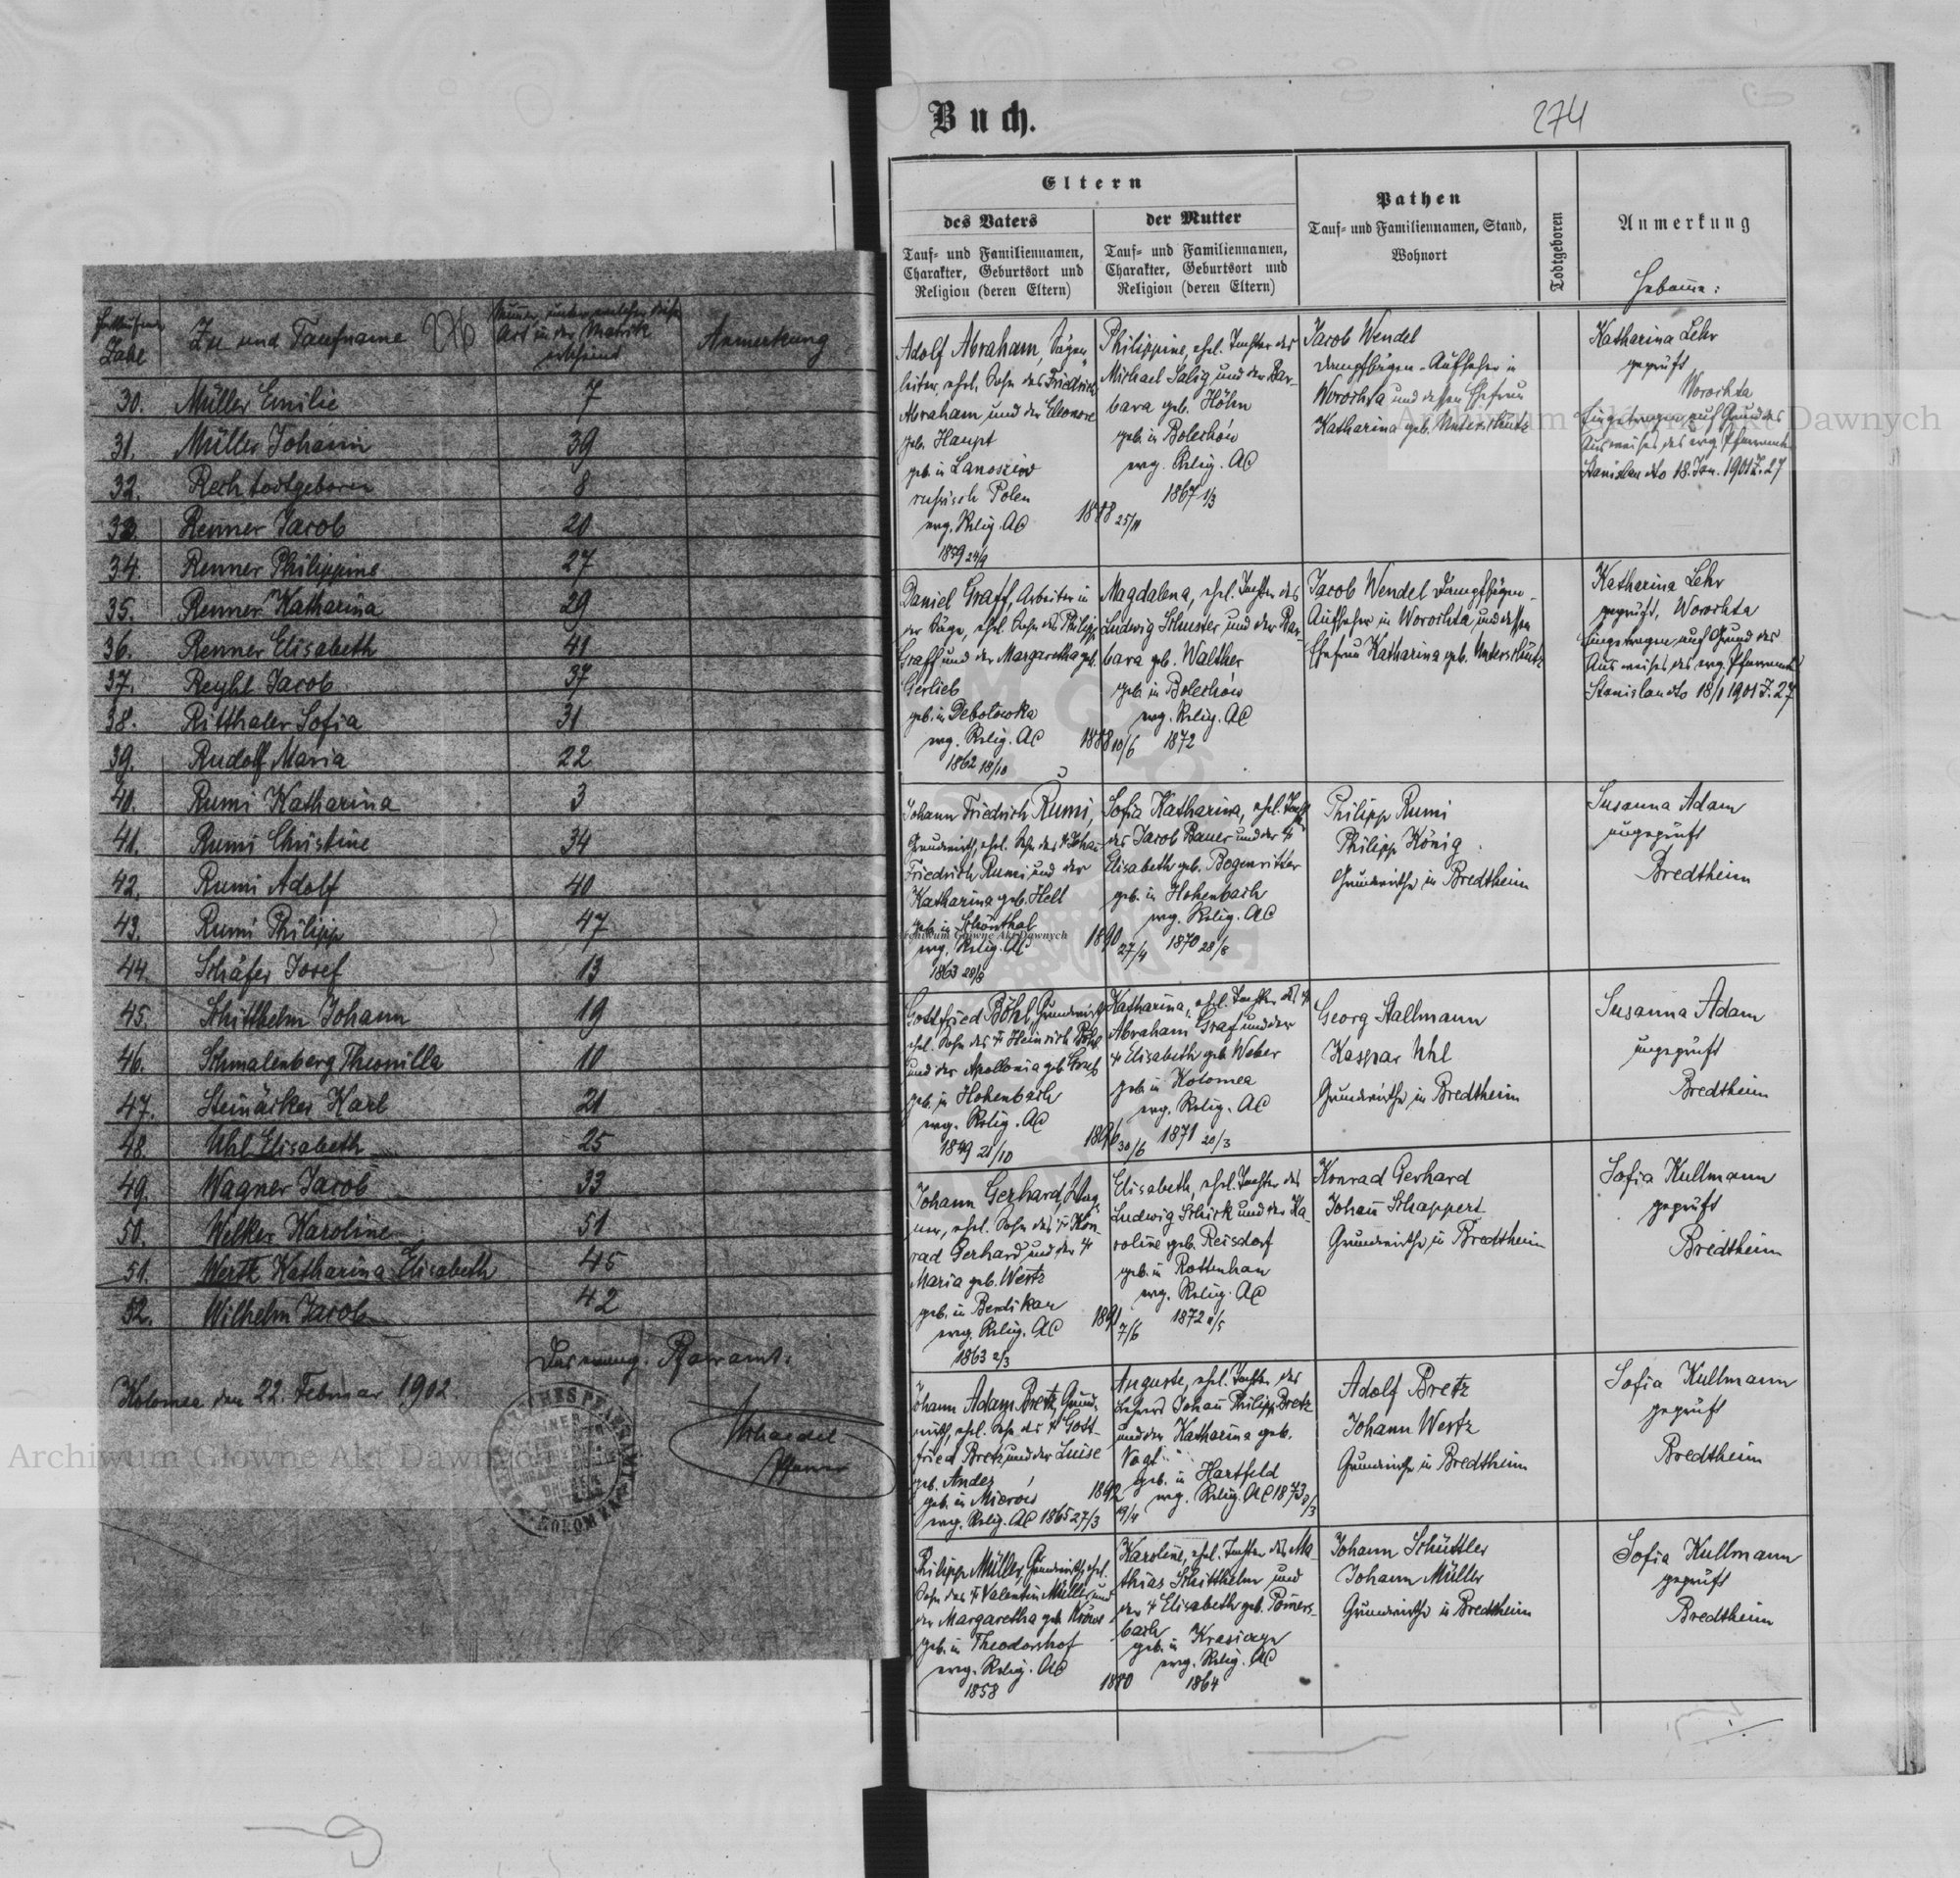 Fortlaufende
Zahl
Zu und Taufname
276
Nummer, unter welcher dieser
Act in der Matrik
erscheint
Anmerkung
30. Müller Emilie 7
31. Müller Johann 39
32. Rech todtgeboren 8
33. Renner Jacob 20
34. Renner Philippine 27
35. Renner Katharina 29
36. Renner Elisabeth 41
37. Reyhl Jacob 37
38. Ritthaler Sofia 31
39. Rudolf Maria 22
40. Rumi Katharina 3
41. Rumi Christine 34
42. Rumi Adolf 40
43. Rumi Philipp 47
44. Schäfer Josef 13
45. Schitthelm Johann 19
46. Schmalenberg Theonilla 10
47. Karl 21
48. Uhl Elisabeth 25
49. Wagner Jacob 33
50. Welker Karoline 51
51. Wertz Katharina Elisabeth 45
52. Wilhelm Jacob 42
Das evang. Pfarramt:
Kolomea den 22. Februar 1902.
Pfarrer
Archiwum Głowne Akt Dawnych
Buch.
274
Eltern
des Vaters
Tauf= und Familiennamen,
Charakter, Geburtsort und
Religion (deren Eltern)
der Mutter
Tauf= und Familiennamen,
Charakter, Geburtsort und
Religion (deren Eltern)
Pathen
Tauf= und Familiennamen, Stand,
Wohnort
Todtgeboren
Anmerkung
Hebamme:
Adolf Abraham, Sägen
leiter, ehel. Sohn des Friedrich
Abraham und der Eleonore
geb. Haupt
geb. in
russisch Polen
evg. Relig. AC
1859 24/9
1888 25/11
Philippine, ehel. Tochter des
Michael Salig und der Bar-
bara geb. Höhn
geb. in Bolechów
evg. Relig. AC
1867 1/3
Jacob Wendel
Dampfsägen-Aufseher in
Worochta und dessen Ehefrau
Katharina geb. Unterschütz
Katharina Lehr
geprüft
Worochta
Eingetragen auf Grund des
Ausweises des evg. Pfarramts
Stanislau dto 18. Jan. 1901 Z. 27
Daniel Graff, Arbeiter in
der Säge, ehel. Sohn des Philipp
Graff und der Margaretha geb.
Gerlieb
geb. in Debolowka
evg. Relig. AC
1862 18/10
1888 10/6
Magdalena, ehel. Tochter des
Ludwig Schuster und der Bar-
bara geb. Walther
geb. in Bolechów
evg. Relig. AC
1872
Jacob Wendel Dampfsägen-
Aufseher in Worochta und dessen
Ehefrau Katharina geb. Unterschütz
Katharina Lehr
geprüft, Worochta
Eingetragen auf Grund des
Ausweises des evg. Pfarramts
Stanislau dto 18/1 1901 Z. 27
Johann Friedrich Rumi,
Grundwirth, ehel. Sohn des † Johann
Friedrich Rumi und der
Katharina geb. Helt
geb. in Schönthal
evg. Relig. AC
1863 20/9
1890 27/4
Sofia Katharina, ehel. Tochter
des Jacob Bauer und der †
Elisabeth geb. Bogenritter
geb. in Hohenbach
evg. Relig. AC
1870 28/8
Philipp Rumi
Philipp König
Grundwirthe in Bredtheim
Susanna Adam
ungeprüft
Bredtheim
Gottfried Böhl, Grundwirth
ehel. Sohn des † Heinrich Böhl
und der Apollonia geb. Grub
geb. in Hohenbach
evg. Relig. AC
1849 21/10
1896 30/6
Katharina, ehel. Tochter des †
Abraham Graf und der
† Elisabeth geb. Weber
geb. in Kolomea
evg. Relig. AC
1871 20/3
Georg Kallmann
Kaspar Uhl
Grundwirthe in Bredtheim
Susanna Adam
ungeprüft
Bredtheim
Johann Gerhard,
ehel. Sohn des † Kon-
rad Gerhard und der †
Maria geb. Wertz
geb. in Berdikau
evg. Relig. AC
1863 2/3
1891 7/6
Elisabeth, ehel. Tochter des
Ludwig Schick und der Ka-
roline geb. Reisdorf
geb. in Rottenhan
evg. Relig. AC
1872 11/5
Konrad Gerhard
Johann Schappert
Grundwirthe in Bredtheim
Sofia Kullmann
geprüft
Bredtheim
Johann Adam Bretz, Grund-
wirth, ehel. Sohn des † Gott-
fried Bretz und der Luise
geb. Andez
geb. in Mierów
evg. Relig. AC 1865 27/3
1892 19/4
Auguste, ehel. Tochter des
Lehrers Johann Philipp Bretz
und der Katharina geb.
Vogl
geb. in Hartfeld
evg. Relig. AC 1873
Adolf Bretz
Johann Wertz
Grundwirthe in Bredtheim
Sofia Kullmann
geprüft
Bredtheim
Philipp Müller, Grundwirth, ehel.
Sohn des † Valentin Müller und
der Margaretha geb.
geb. in Theodorshof
evg. Relig. AC
1858
1880
Karoline, ehel. Tochter des Ma-
thias Schitthelm und
der † Elisabeth geb. Pomers-
bach
geb. in
evg. Relig. AC
1864
Johann Schüttler
Johann Müller
Grundwirthe in Bredtheim
Sofia Kullmann
geprüft
Bredtheim